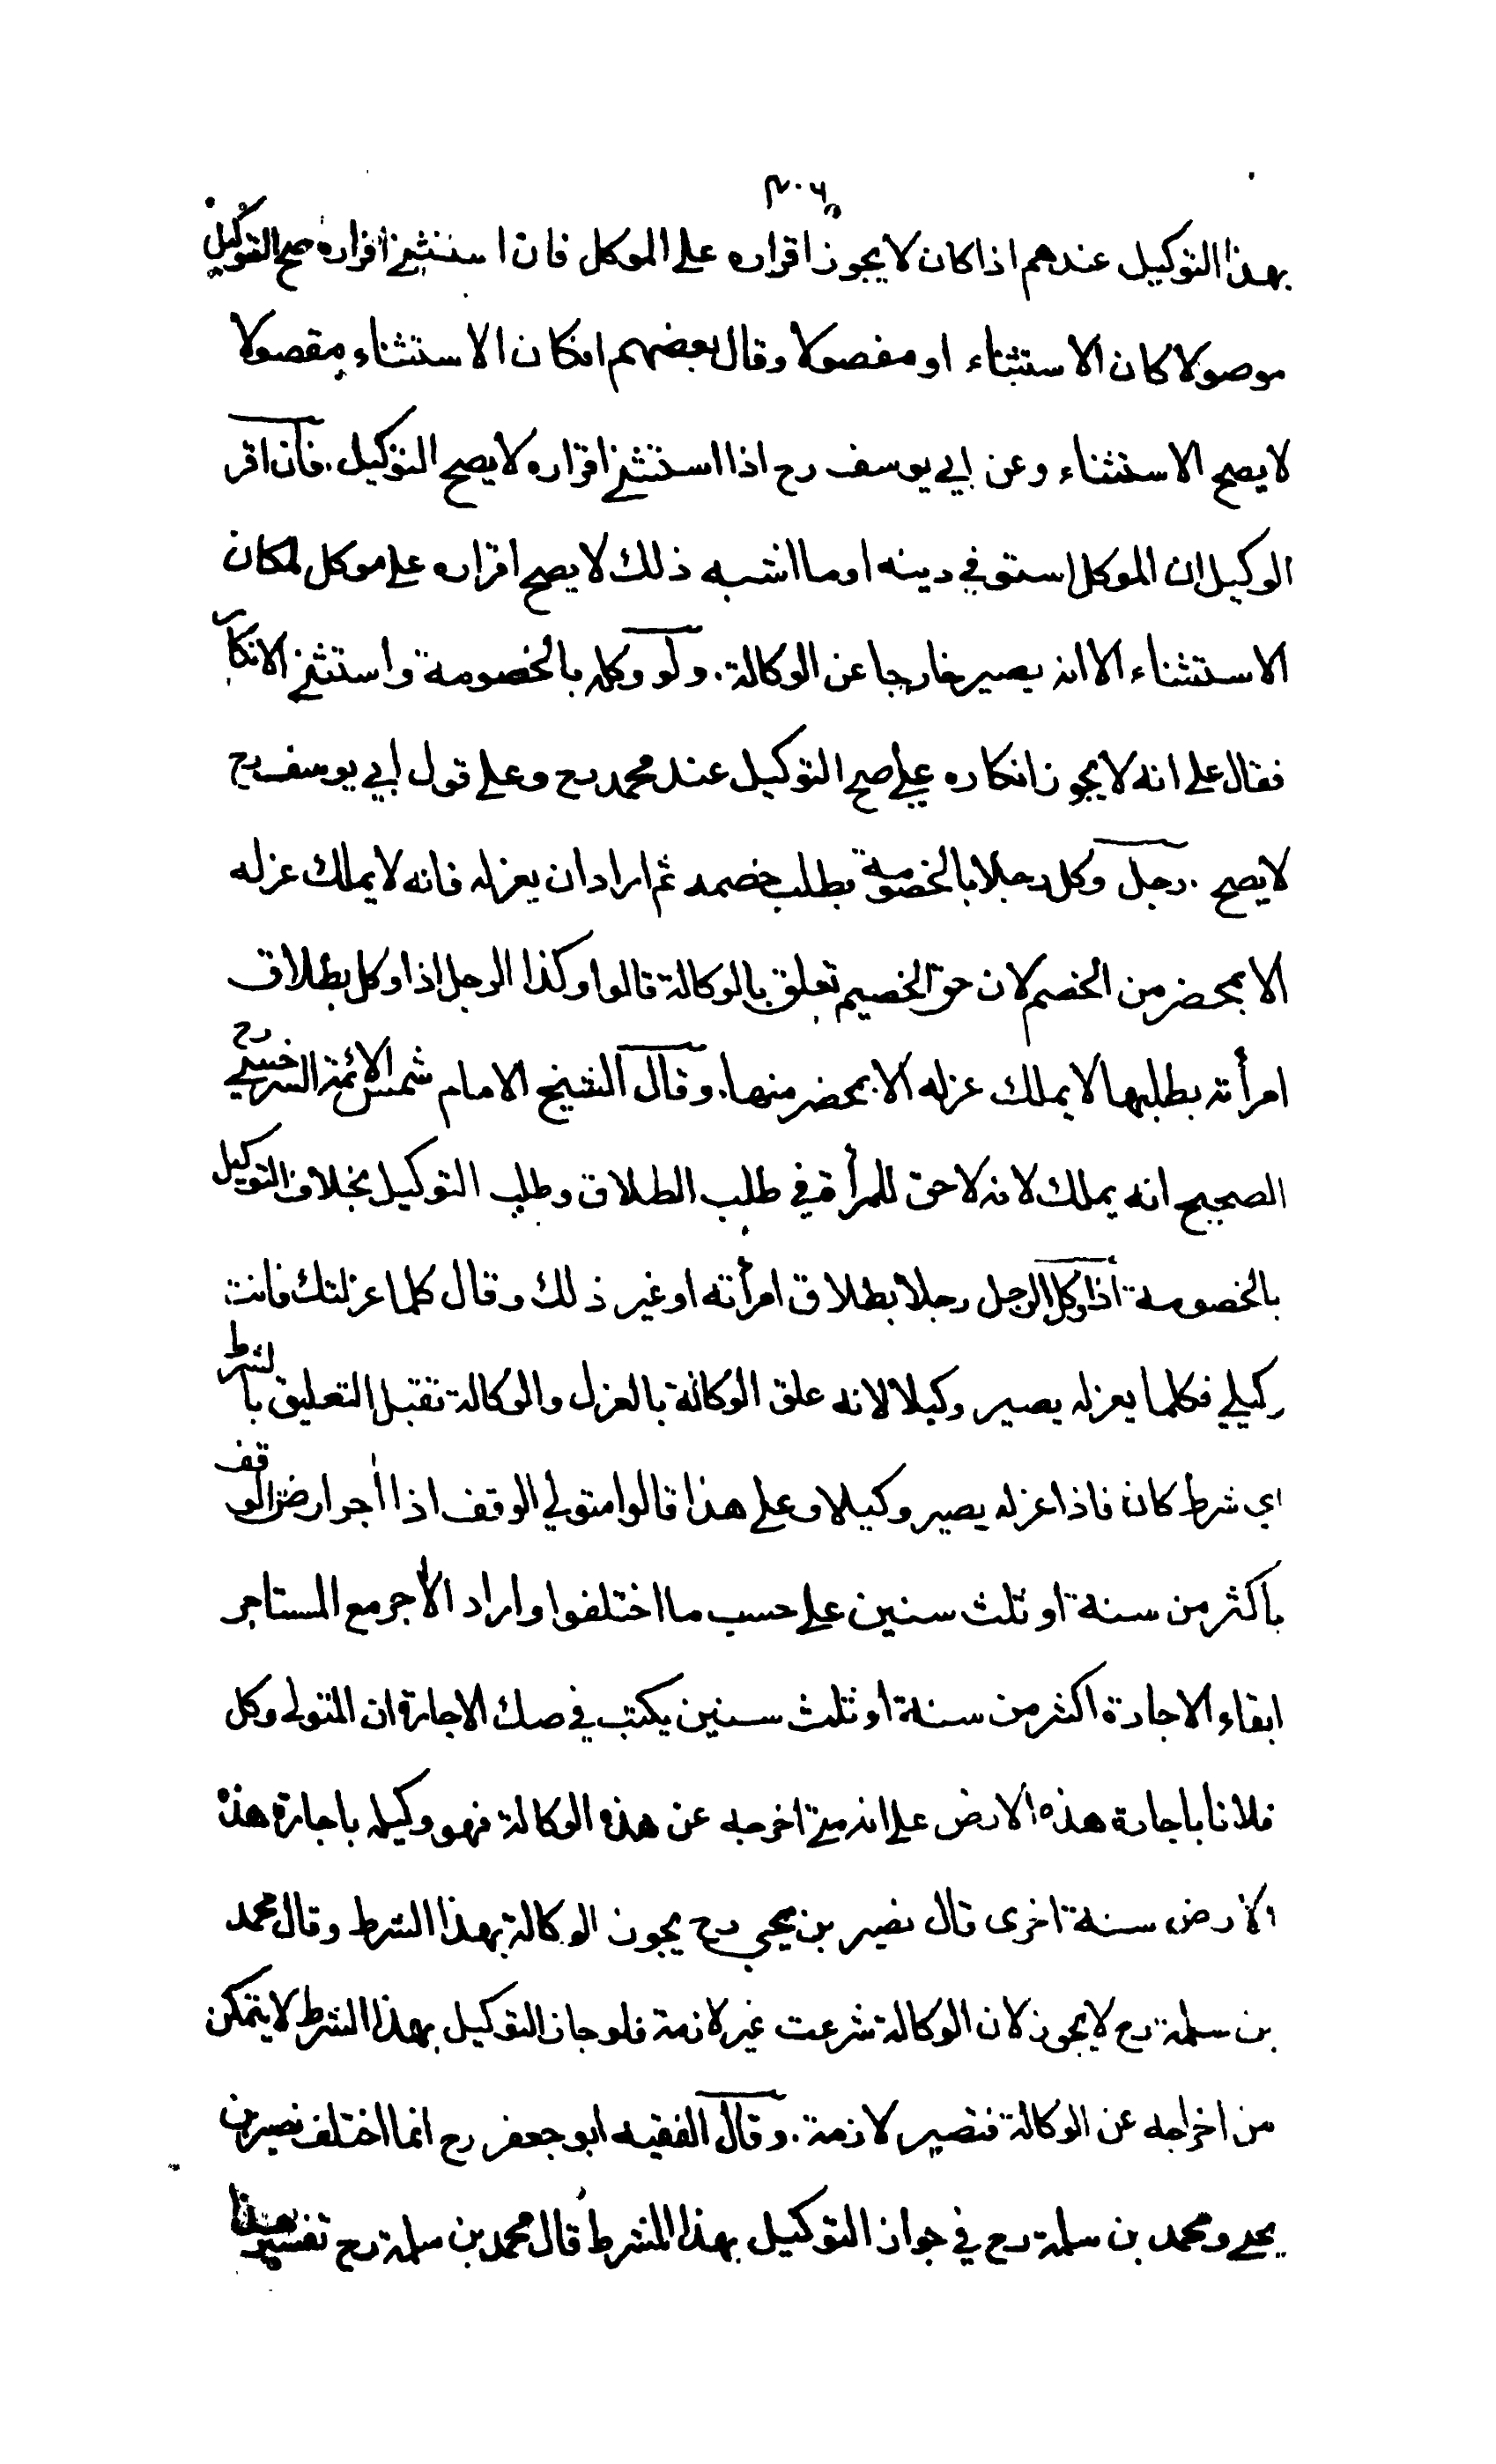 ٣٠٦
بهذا التوكيل عندهم اذا كان لا يجوز اقراره على الموكل فان استثنى اقراره صح التوكيل
موصولا كان الاستثناء او مفصولا وقال بعضهم انكان الاستثناء مفصولا
لا يصح الاستثناء وعن ابي يوسف رح اذا استثنى اقراره لا يصح التوكيل . فان اقر
الوكيل ان الموكل استوفي دينه او ما اشبه ذلك لا يصح اقراره على موكل لمكان
الاستثناء الا انه يصير خارجا عن الوكالة . ولو وكله بالخصومة واستثنى الانكار
فقال على انه لا يجوز انكاره علي صح التوكيل عند محمد رح وعلى قول ابي يوسف رح
لا يصح . رجل وكل رجلا بالخصومة بطلب خصمه ثم اراد ان يعزله فانه لا يملك عزله
الا بمحضر من الخصم لان حق الخصيم تعلق بالوكالة قالوا وكذا الرجل اذا وكل بطلاق
امرأته بطلبها لا يملك عزله الا بمحضر منها . وقال الشيخ الامام شمس الائمة السرخسي رح
الصحيح انه يملك لانه لا حق للمرأة في طلب الطلاق وطلب التوكيل بخلاف التوكيل
بالخصومة اذا وكل الرجل رجلا بطلاق امرأته او غير ذلك وقال كلما عزلتك فانت
وكيلي فكلما يعزله يصير وكيلا لانه علق الوكالة بالعزل والوكالة تقبل التعليق بالشرط
اي شرط كان فاذا عزله يصير وكيلا وعلى هذا قالوا متولي الوقف اذا اجر ارض الوقف
باكثر من سنة او ثلث سنين على حسب ما اختلفوا واراد الأجر مع المستاجر
ابقاء الاجارة اكثر من سنة او ثلث سنين يكتب في صك الاجارة ان المتولي وكل
فلانا باجارة هذه الارض على انه متى اخرجه عن هذه الوكالة فهو وكيله باجارة هذه
الارض سنة اخرى قال نصير بن يحيى رح يجوز الوكالة بهذا الشرط وقال محمد
بن سلمة رح لا يجوز لان الوكالة شرعت غير لازمة فلو جاز التوكيل بهذا الشرط لا يتمكن
من اخراجه عن الوكالة فتصير لازمة . وقال الفقيه ابو جعفر رح انما اختلف نصير بن
يحي ومحمد بن سلمة رح في جواز التوكيل بهذا الشرط قال محمد بن سلمة رح تفسير هذا